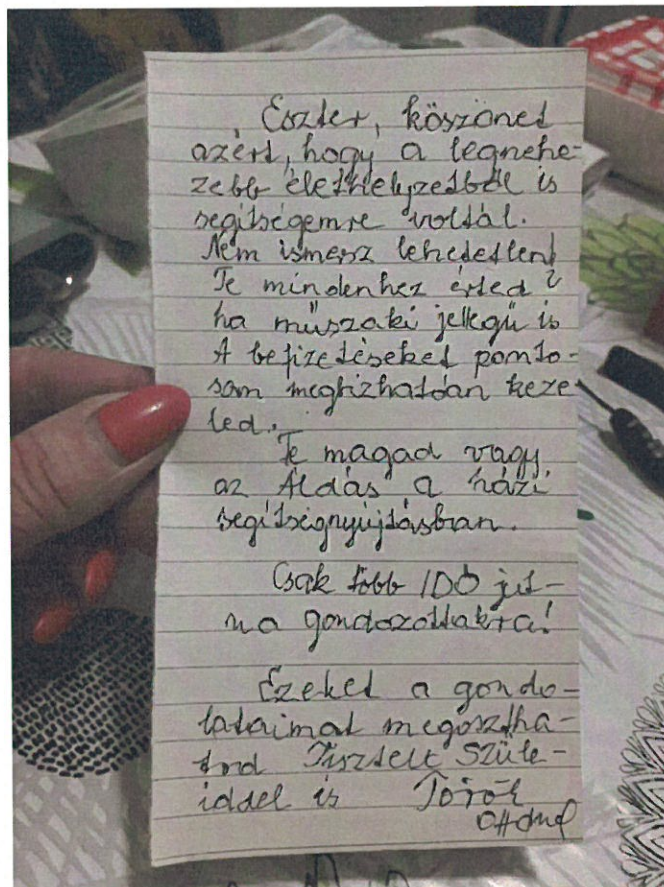 Eszter, köszönet
azért, hogy a legnehe-
zebb élethelyzetből is
segítségemre voltál.
Nem ismersz lehetetlent
Te mindenhez érted
ha műszaki jellegű is
A befizetéseket ponto-
san megbízhatóan keze
led.
Te magad vagy
az Áldás a házi
segítségnyújtásban.
Csak több IDŐ jut-
na gondozottakra!
Ezeket a gondo-
lataimat megosztha-
tod Tisztelt Szüle-
iddel is Török